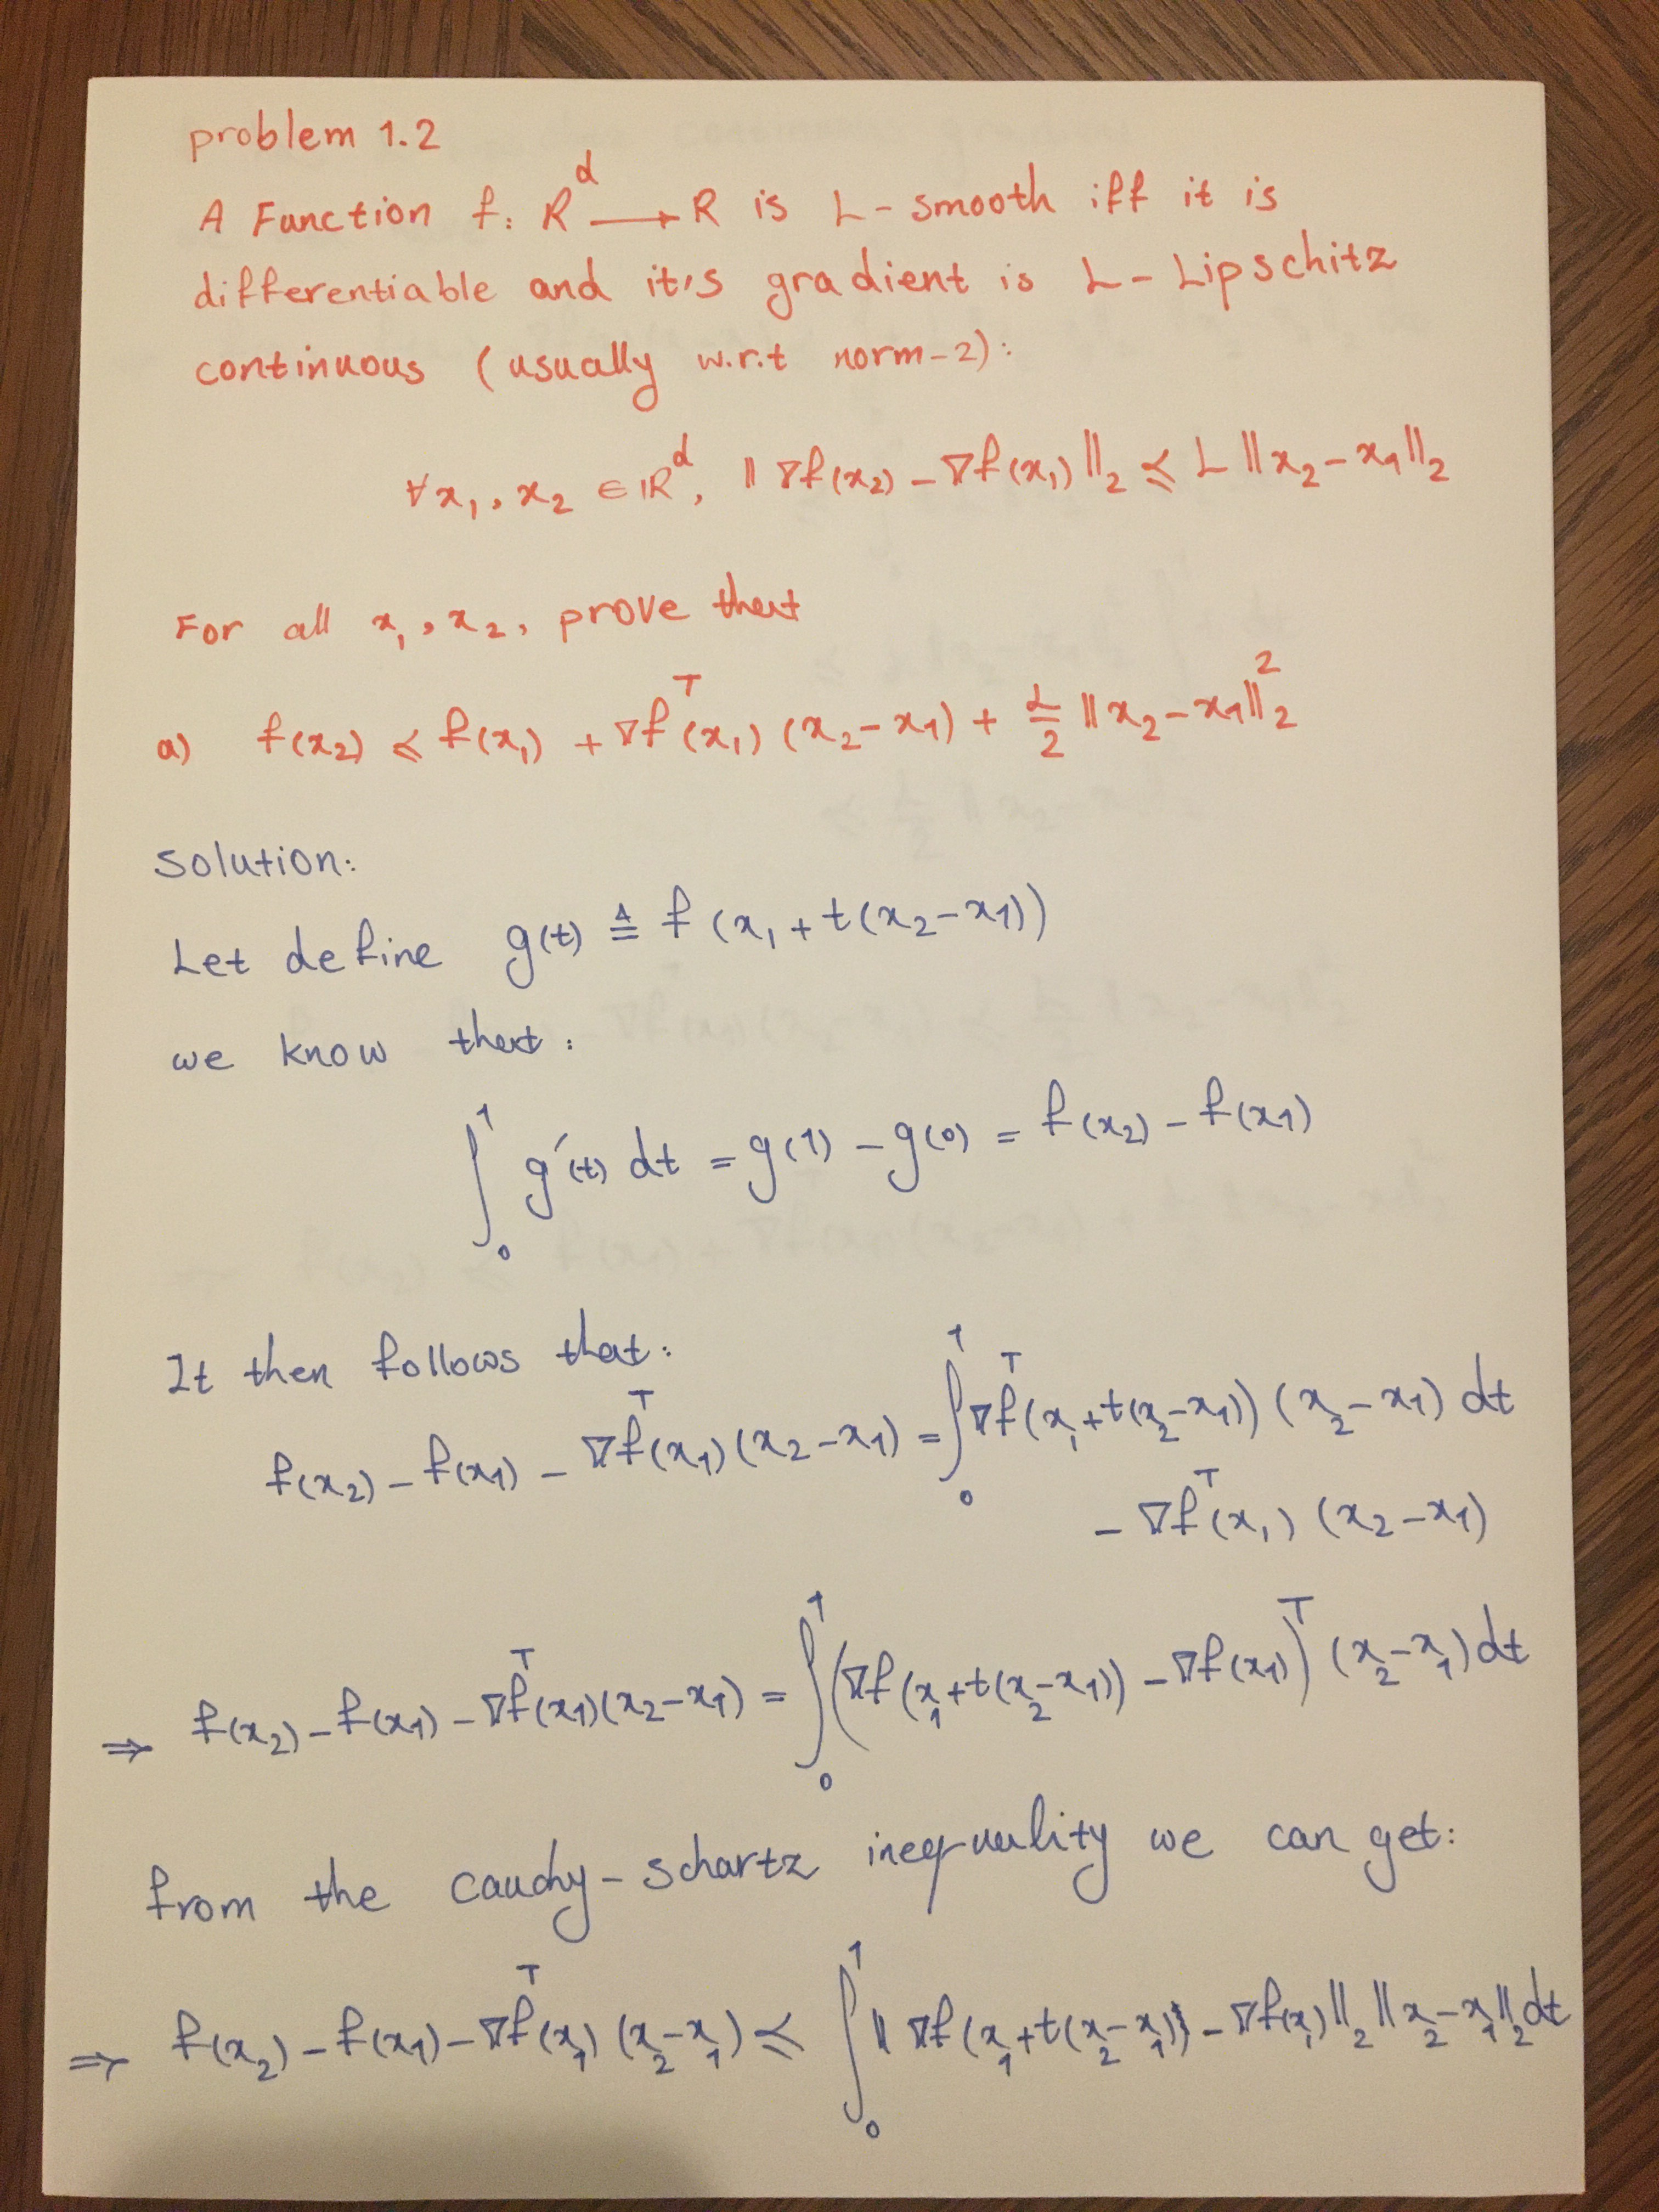 problem 1.2
A Function f: R^d → R is L-smooth iff it is
differentiable and it's gradient is L-Lipschitz
continuous (usually w.r.t norm-2):
∀x₁, x₂ ∈ ℝ^d, ‖∇f(x₂) - ∇f(x₁)‖₂ ≤ L ‖x₂-x₁‖₂
For all x₁, x₂, prove that
a) f(x₂) ≤ f(x₁) + ∇f^T(x₁) (x₂-x₁) + L/2 ‖x₂-x₁‖₂²
Solution:
Let define g(t) ≜ f(x₁+t(x₂-x₁))
we know that:
∫₀¹ g′(t) dt = g(1) - g(0) = f(x₂) - f(x₁)
It then follows that:
f(x₂) - f(x₁) - ∇f^T(x₁)(x₂-x₁) = ∫₀¹ ∇f^T(x₁+t(x₂-x₁)) (x₂-x₁) dt
- ∇f^T(x₁) (x₂-x₁)
⇒ f(x₂) - f(x₁) - ∇f^T(x₁)(x₂-x₁) = ∫₀¹ (∇f(x₁+t(x₂-x₁)) - ∇f(x₁))^T (x₂-x₁) dt
from the cauchy-schartz inequality we can get:
⇒ f(x₂) - f(x₁) - ∇f^T(x₁) (x₂-x₁) ≤ ∫₀¹ ‖∇f(x₁+t(x₂-x₁)) - ∇f(x₁)‖₂ ‖x₂-x₁‖₂ dt